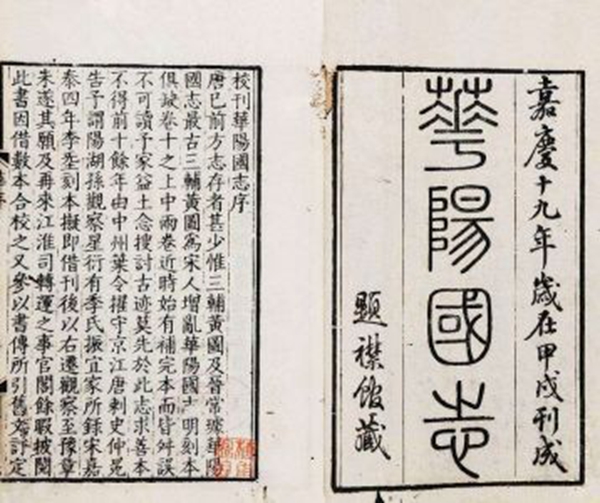 嘉慶十九年歲在甲戌刊成
華陽國志
題襟館藏
校刊華陽國志序
唐已前方志存者甚少惟三輔黃圖及晉常璩華陽
國志最古三輔黃圖為宋人增亂華陽國志明刻本
俱缺卷十之上中兩卷近時始有補完本而皆舛誤
不可讀予家益土念搜討古迹莫先於此志求善本
不得前十餘年由中州葉令擢守京江唐刺史仲冕
告予謂陽湖孫觀察星衍有李氏振宜家所錄宋嘉
泰四年李𡌴刻本擬即借刊後以右遷觀察至豫章
未遂其願及再來江淮司轉運之事官閣餘暇披閱
此書因借數本合校之又參以書傳所引舊文評定